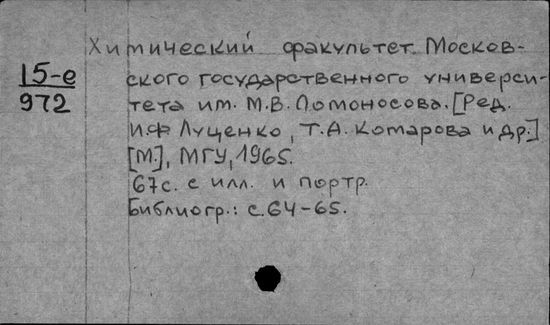 Химический факультет Москов-
15-е
972
ского государственного универси-
тета им. М.В. Ломоносова. [Ред.
И.Ф Луценко, Т.А. Комарова и др.]
[М.], МГУ, 1965.
67с. с илл. и портр.
Библиогр.: с.64-65.